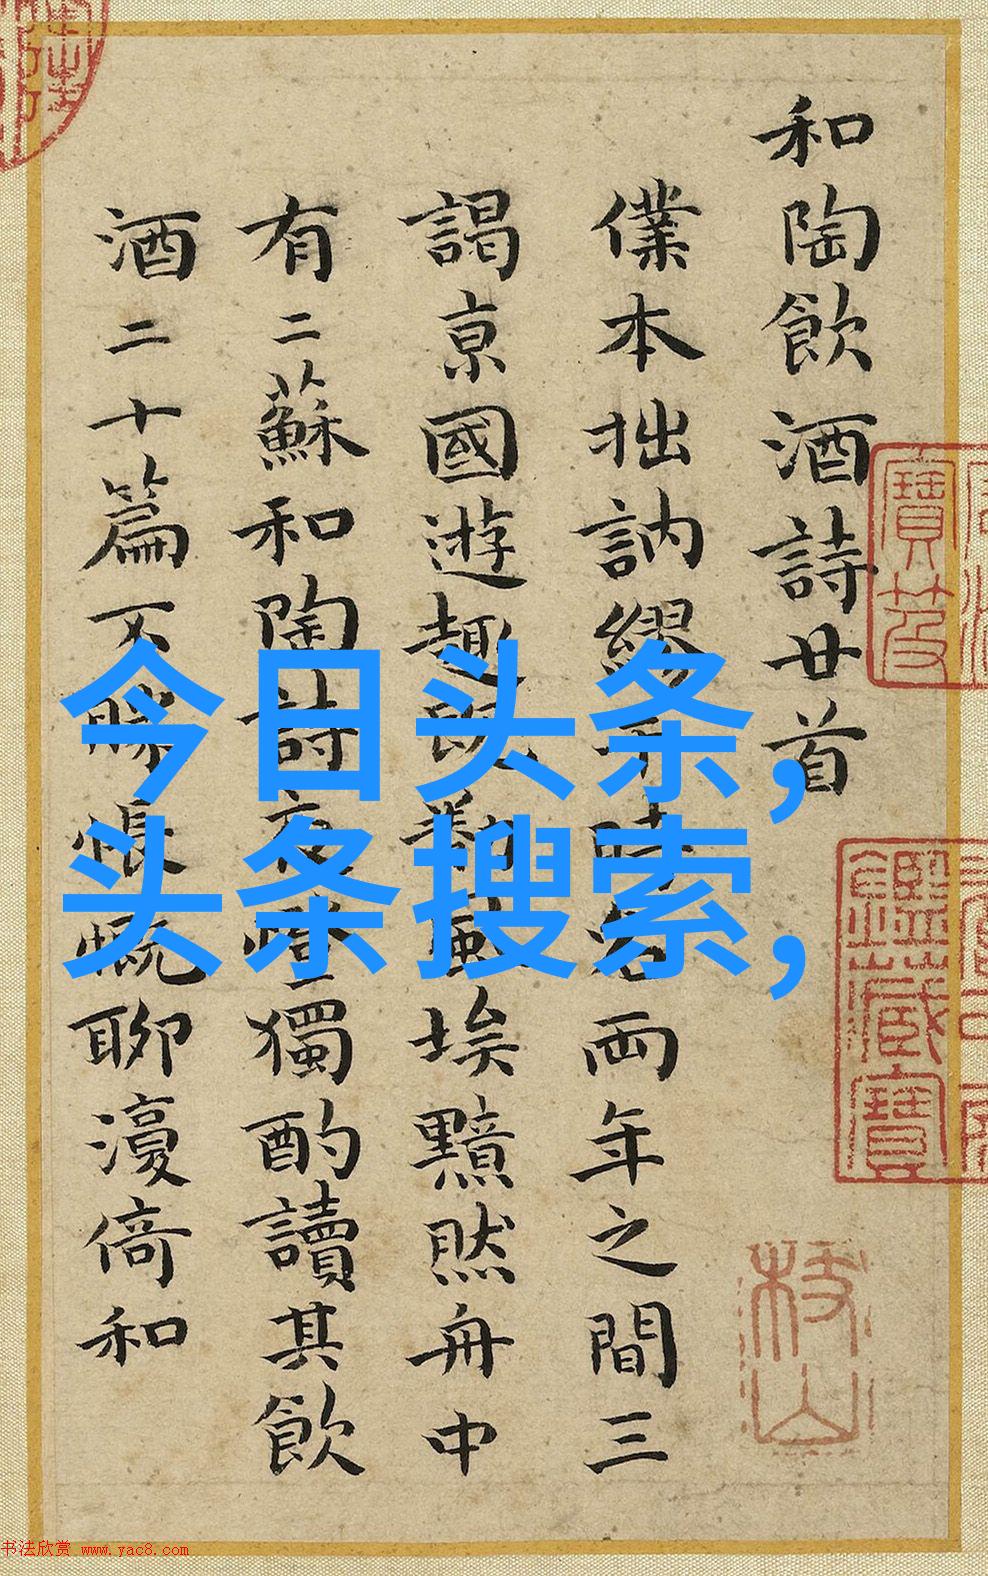 和陶飲酒詩廿首
僕本拙訥繆時名兩年之間三
謁亰國遊趣埃黯然舟中
有二蘇和陶詩夜獨酌讀其飲
酒二十篇不勝悵慨聊倚和
今日头条,
头条搜索,
寶笈
鑑藏寶
枝山
书法欣赏 www.yac8.com